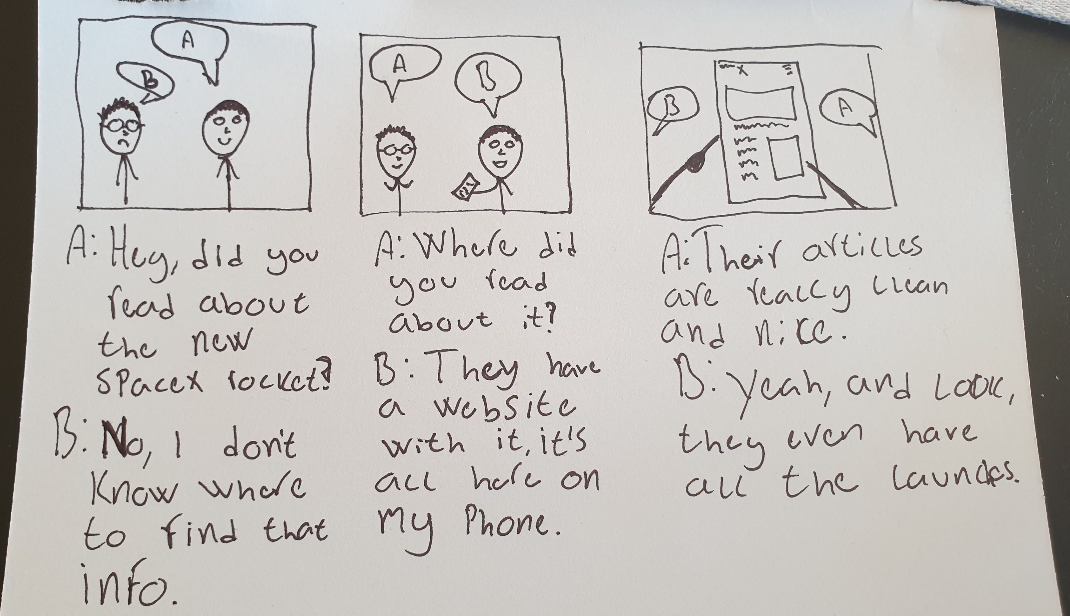 B
A
A
B
B
A
X
A: Hey, did you
read about
the new
SpaceX rocket?
B: No, I don't
Know where
to find that
info.
A: Where did
you read
about it?
B: They have
a website
with it, it's
all here on
my Phone.
A: Their articles
are really clean
and nice.
B: Yeah, and Look,
they even have
all the launches.